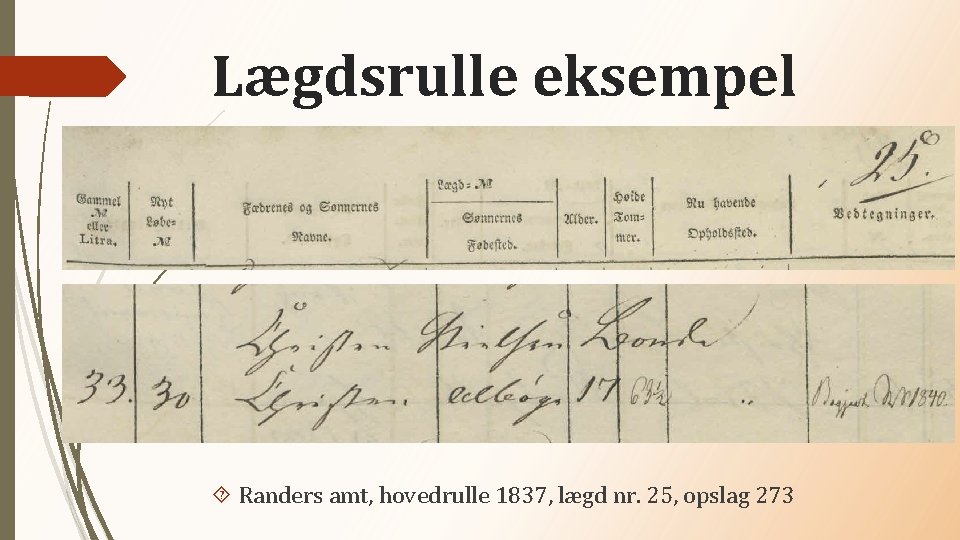 Lægdsrulle eksempel
25.
Gammel № eller Litra.
Nyt Løbe= №
Fædrenes og Sønnernes Navne.
Lægd= №
Sønnernes Fødested.
Alder.
Høide Tom= mer.
Nu havende Opholdssted.
Vedtegninger.
Christen Nielsen Bonde
33. 30 Christen Albøge 17 63½ " 1840.
Randers amt, hovedrulle 1837, lægd nr. 25, opslag 273